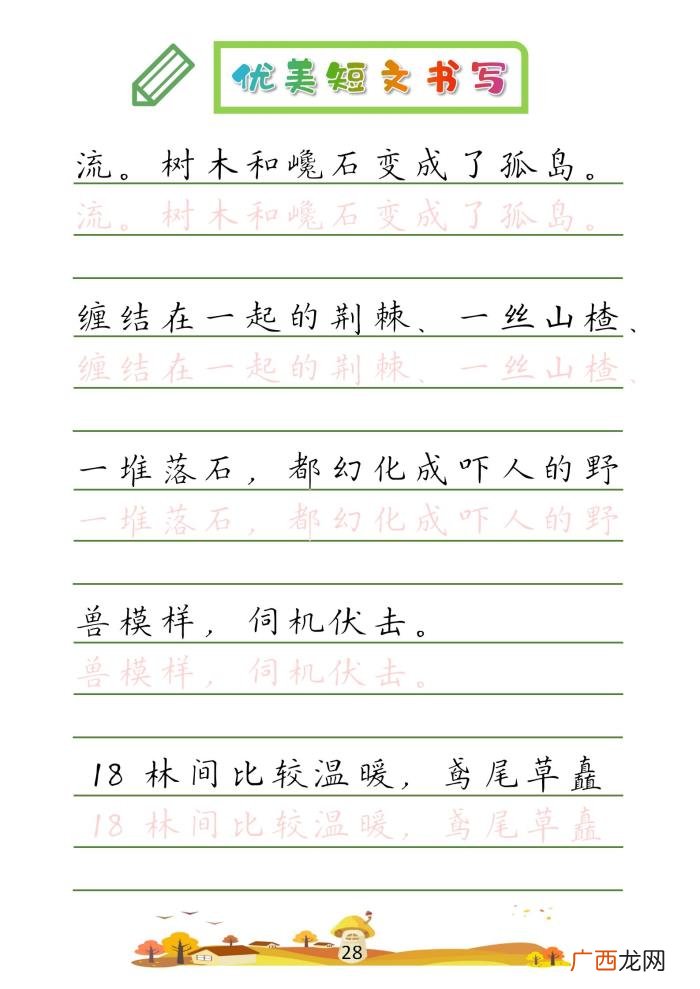 优美短文书写
流。树木和巉石变成了孤岛。
流。树木和巉石变成了孤岛。
缠结在一起的荆棘、一丝山楂、
缠结在一起的荆棘、一丝山楂、
一堆落石，都幻化成吓人的野
一堆落石，都幻化成吓人的野
兽模样，伺机伏击。
兽模样，伺机伏击。
18 林间比较温暖，鸢尾草矗
18 林间比较温暖，鸢尾草矗
28
广西龙网